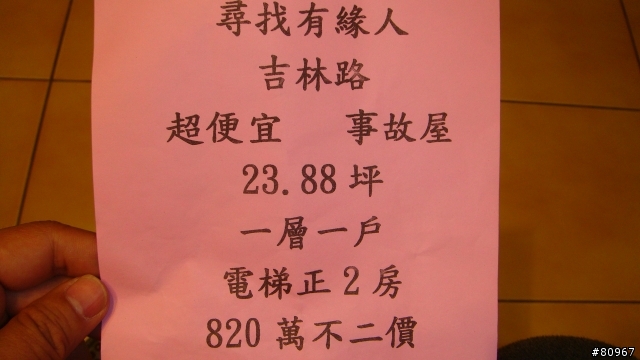 尋找有緣人
吉林路
超便宜 事故屋
23.88 坪
一層一戶
電梯正 2 房
820 萬不二價
#80967